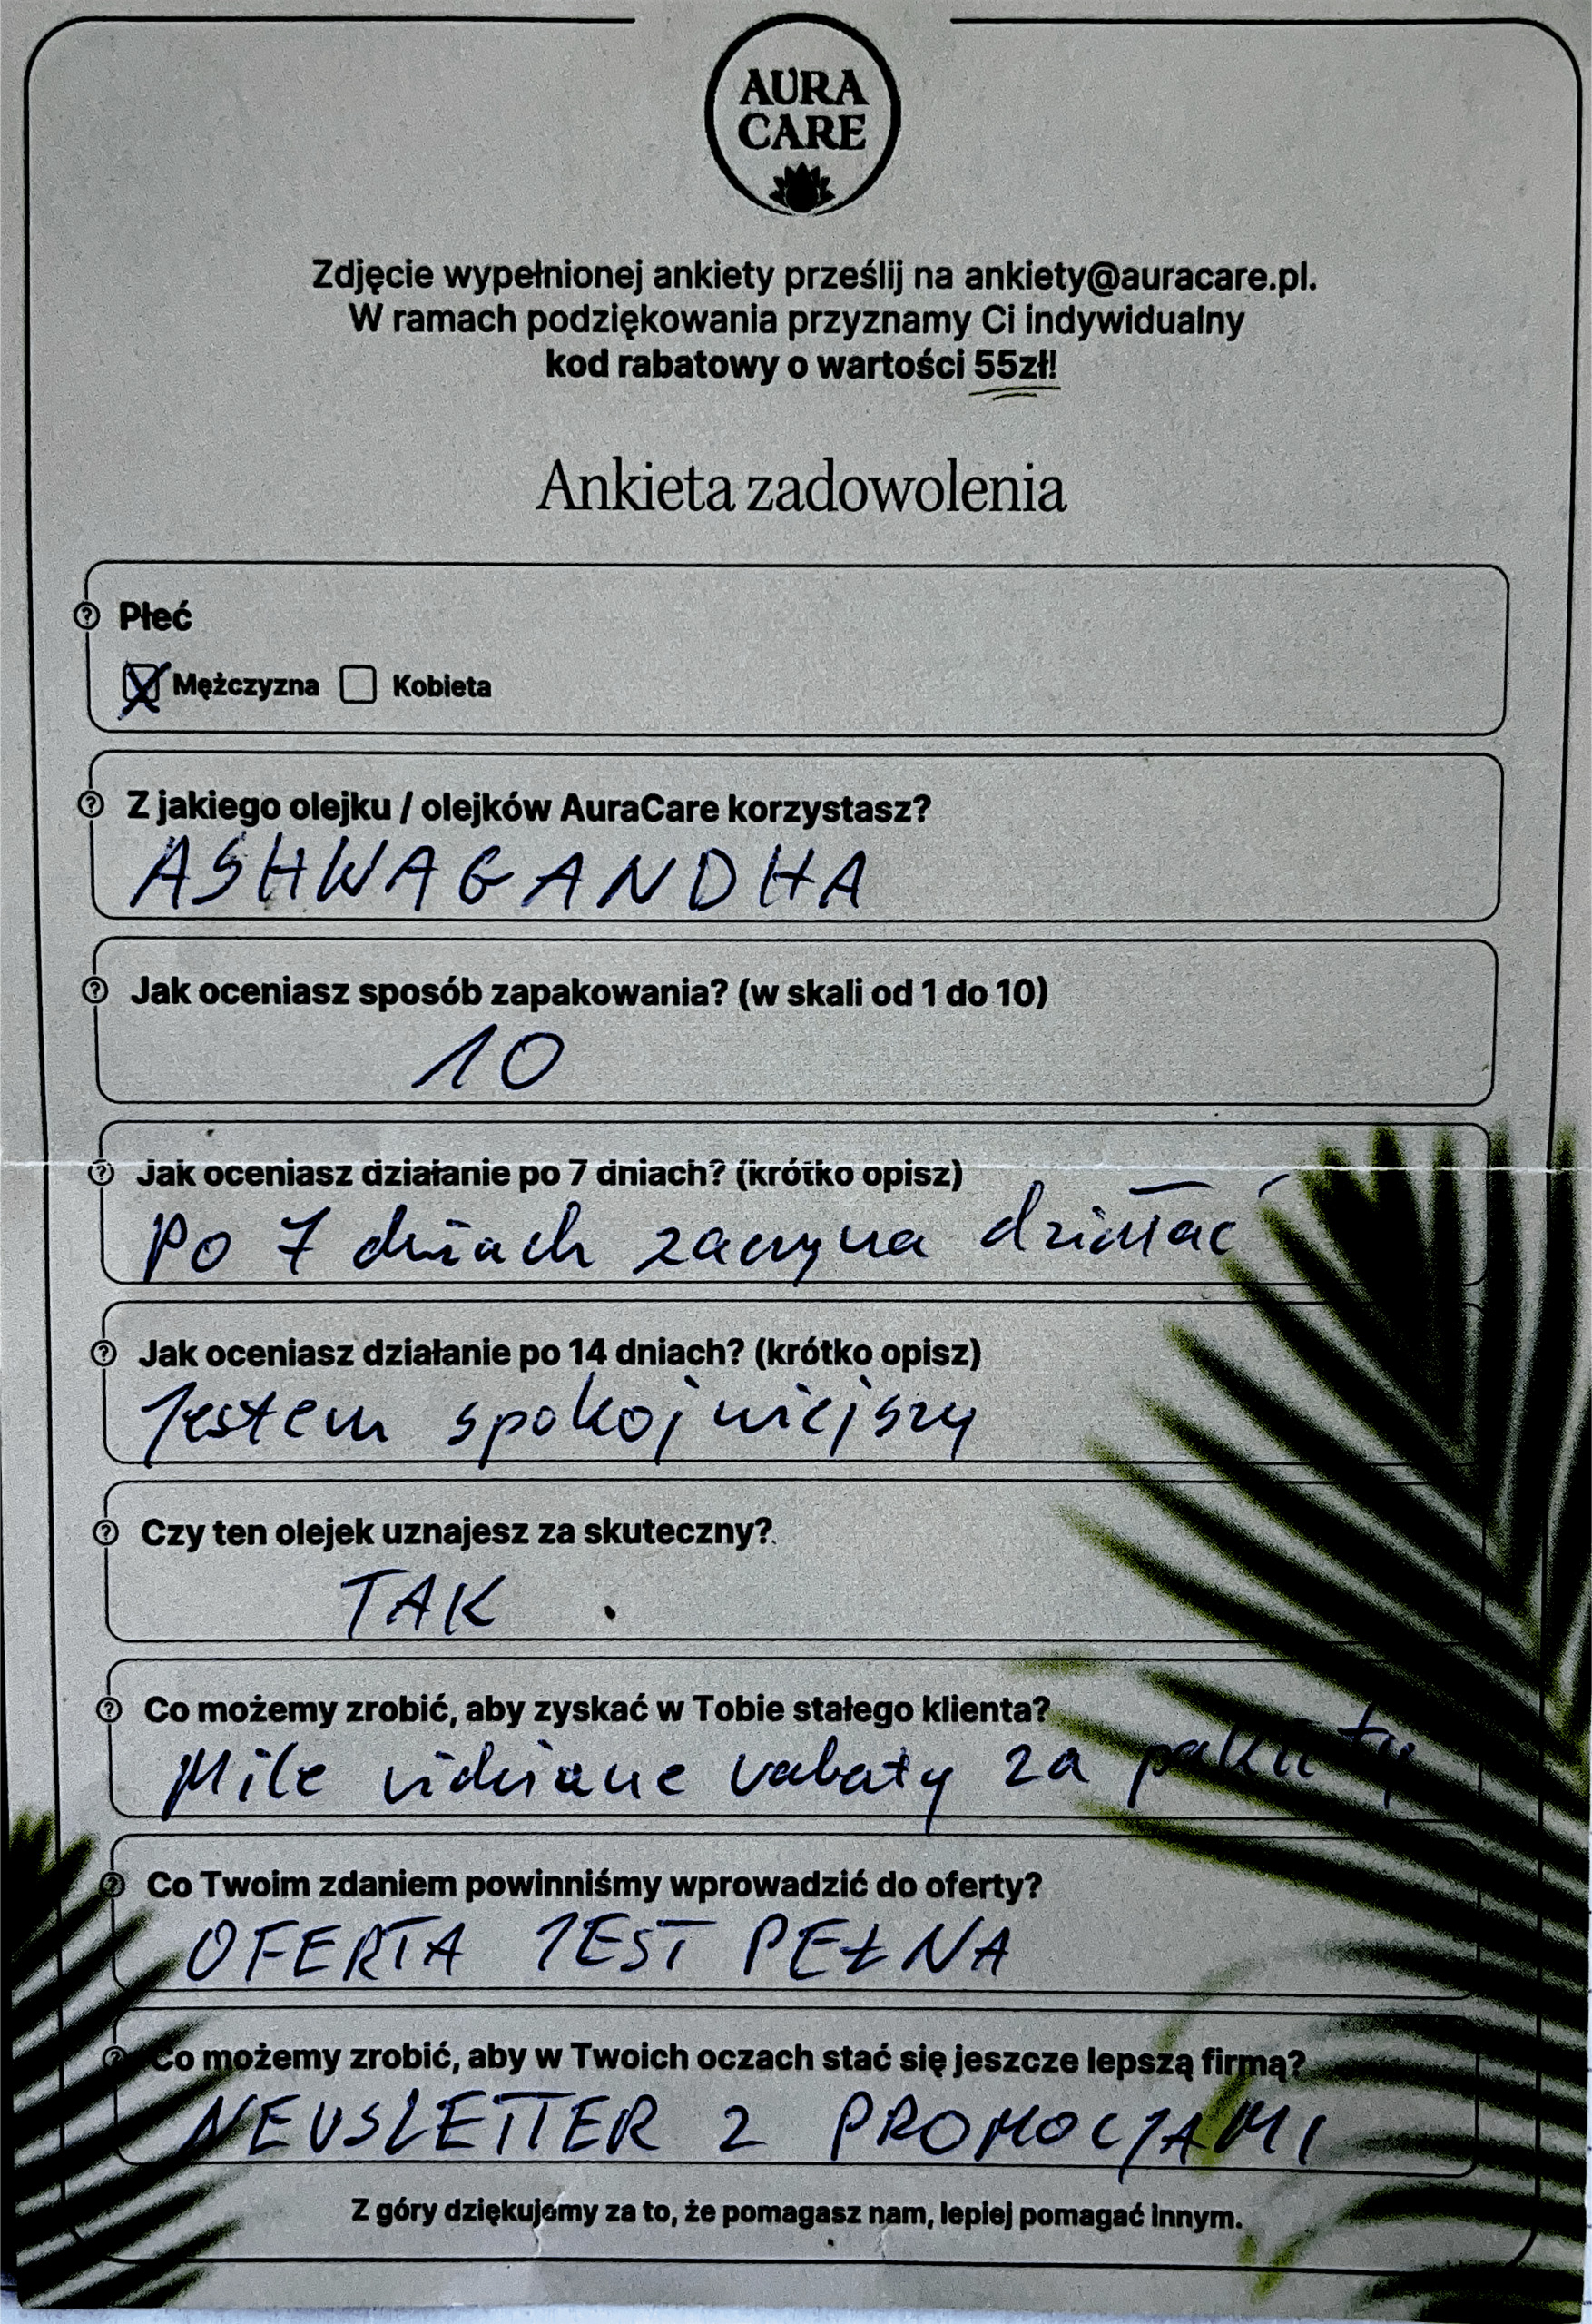 AURA
CARE
Zdjęcie wypełnionej ankiety prześlij na ankiety@auracare.pl.
W ramach podziękowania przyznamy Ci indywidualny
kod rabatowy o wartości 55zł!
Ankieta zadowolenia
Płeć
Mężczyzna Kobieta
Z jakiego olejku / olejków AuraCare korzystasz?
ASHWAGANDHA
Jak oceniasz sposób zapakowania? (w skali od 1 do 10)
10
Jak oceniasz działanie po 7 dniach? (krótko opisz)
Po 7 dniach zaczyna działać
Jak oceniasz działanie po 14 dniach? (krótko opisz)
Jestem spokojniejszy
Czy ten olejek uznajesz za skuteczny?
TAK
Co możemy zrobić, aby zyskać w Tobie stałego klienta?
Mile widziane rabaty za pakiety
Co Twoim zdaniem powinniśmy wprowadzić do oferty?
OFERTA JEST PEŁNA
Co możemy zrobić, aby w Twoich oczach stać się jeszcze lepszą firmą?
NEWSLETTER Z PROMOCJAMI
Z góry dziękujemy za to, że pomagasz nam, lepiej pomagać innym.